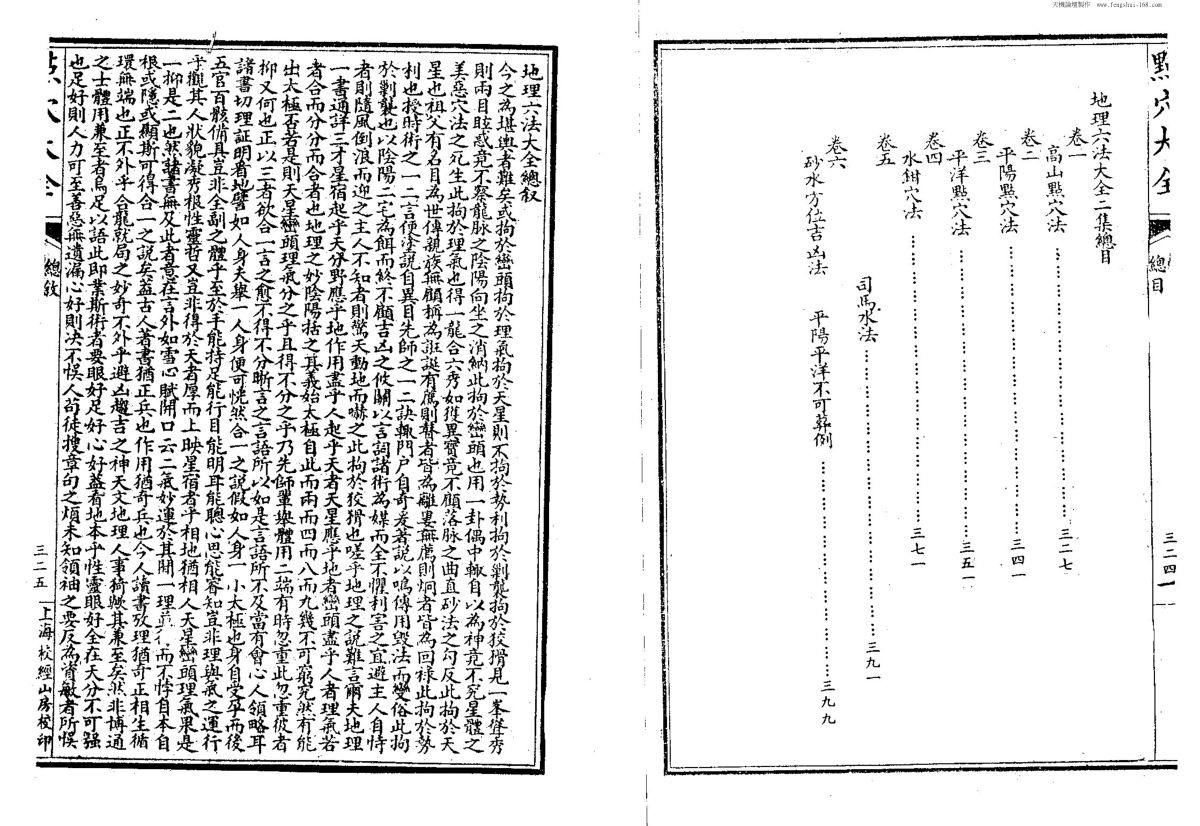 天機論壇製作 www.fengshui-168.com
點穴大全
總目
三二四
地理六法大全二集總目
卷一
高山點穴法 三二七
卷二
平陽點穴法 三四一
卷三
平洋點穴法 三五一
卷四
水鉗穴法 三七一
卷五
司馬水法 三九一
卷六
砂水方位吉凶法 平陽平洋不可葬例 三九九
地理六法大全總叙
今之為堪輿者難矣或拘於巒頭拘於理氣拘於天星則不拘於勢利拘於剿襲拘於狡猾見一峯聳秀
則兩目眩惑竟不察龍脉之陰陽向坐之消納此拘於巒頭也用一卦偶中輙自以為神竟不究星體之
美惡穴法之死生此拘於理氣也得一龍合六秀如獲異寶竟不顧落脉之曲直砂法之勾反此拘於天
星也祖父有名目為世傳親族無顧稱為誑誕有薦則瞽者皆為離婁無薦則炯者皆為回祿此拘於勢
利也授時術之一二言便塗說自異目先師之一二訣輙門户自奇爰著說以鳴傳用毀法而變俗此拘
於剿襲也以陰陽二宅為餌而終不顧吉凶之攸關以言詞諸術為媒而全不懼利害之宜避主人自恃
者則隨風倒浪而迎之主人不知者則驚天動地而嚇之此拘於狡猾也嗟乎地理之說難言爾夫地理
一書通詳三才星宿起乎天分野應乎地作用盡乎人起乎天者天星應乎地者巒頭盡乎人者理氣若
者合而分分而合者也地理之妙陰陽括之其義始太極自此而兩而四而八而九幾不可窮究然有能
出太極否若是則天星巒頭理氣分之乎且得不分之乎乃先師輩舉體用二端有時忽重此忽重彼者
抑又何也正以三者欲合一言之愈不得不分晰言之言語所以如是言語所不及當有會心人領略耳
諸書切理証明看地譬如人身夫舉一人身便可恍然合一之說假如人身一小太極也身自受孕而後
五官百骸備具豈非全副之體乎至於手能持足能行目能明耳能聽心思能睿知豈非理與氣之運行
乎觀其人狀貌凝秀根性靈哲又豈非得於天者厚而上映星宿者乎相地猶相人天星巒頭理氣果是
一抑是二也然諸書無及此者意在言外如雪心賦開口云二氣妙運於其間一理並行而不悖自本自
根或隱或顯斯可得合一之說矣蓋古人著書猶正兵也作用猶奇兵也今人讀書攷理猶奇正相生循
環無端也正不外乎合龍就局之妙奇不外乎避凶趨吉之神天文地理人事猗歟其兼至矣然非博通
之士體用兼至者烏足以語此即業斯術者要眼好足好心好蓋看地本乎性靈眼好全在天分不可强
也足好則人力可至善惡無遺漏心好則决不悞人苟徒搜章句之煩未知領袖之要反為資敏者所悞
總敘
三二五
上海校經山房校印